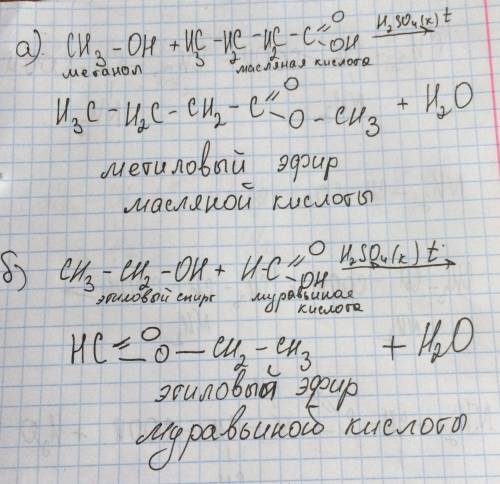 а). CH₃ – OH + H₃C – H₂C – H₂C – C (=O) OH H₂SO₄(к) t →
метанол масляная кислота
H₃C – H₂C – CH₂ – C (=O) O – CH₃ + H₂O
метиловый эфир
масляной кислоты
б) CH₃ – CH₂ – OH + H – C (=O) OH H₂SO₄(к) t →
этиловый спирт муравьиная
кислота
HC (=O) – O – CH₂ – CH₃ + H₂O
этиловый эфир
муравьиной кислоты